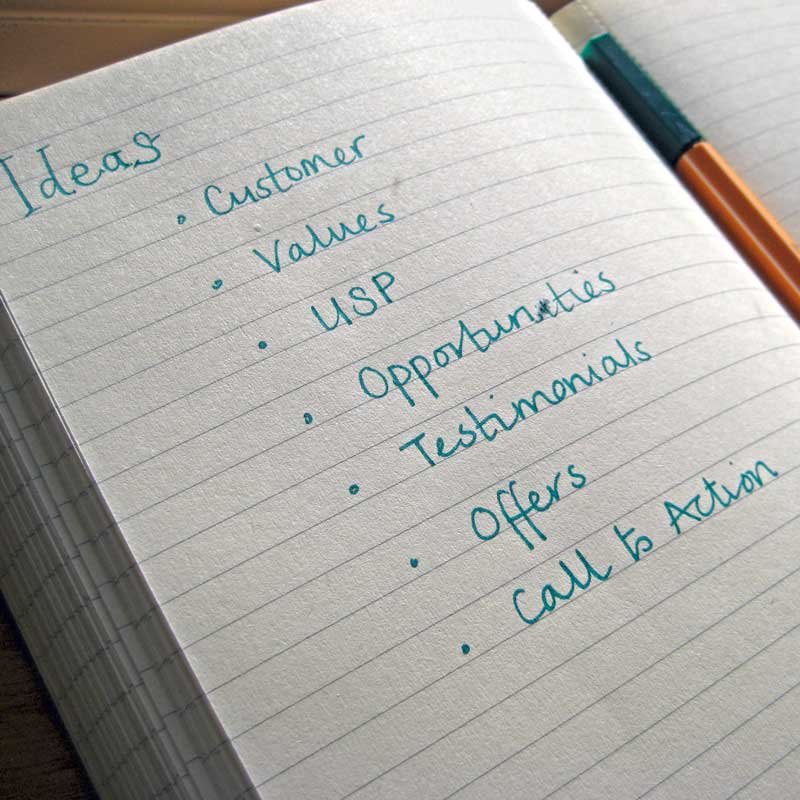 Ideas
• Customer
• Values
• USP
• Opportunities
• Testimonials
• Offers
• Call to Action